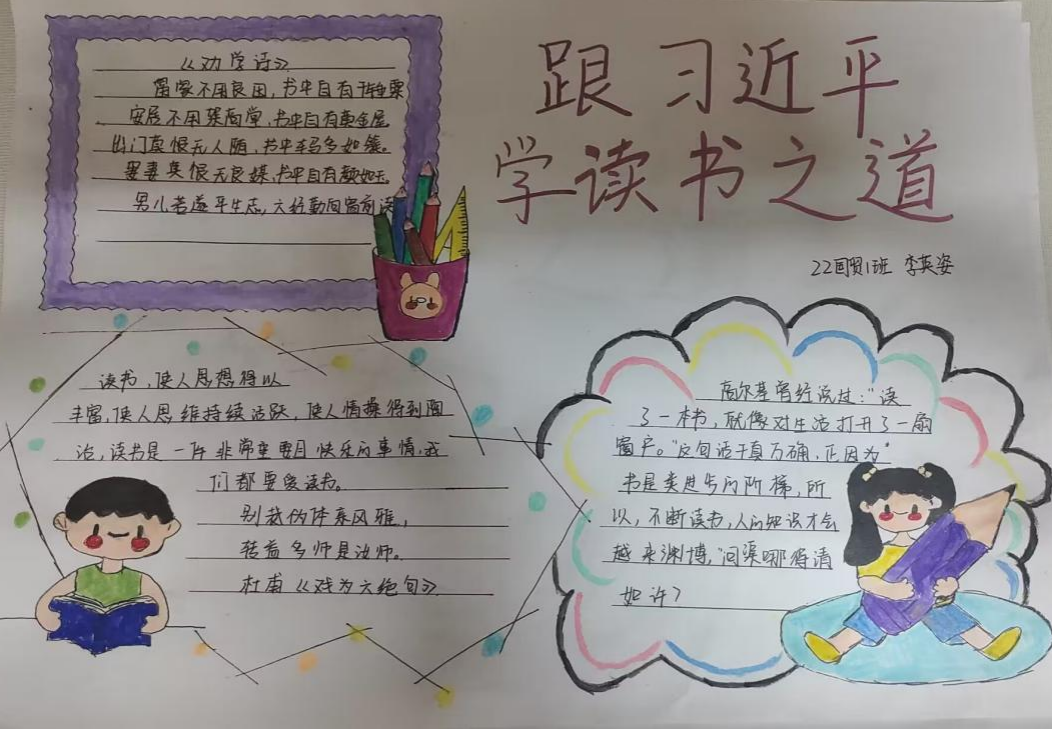 《劝学诗》
富家不用良田,书中自有千钟粟
安居不用架高堂,书中自有黄金屋
出门莫恨无人随,书中车马多如簇。
娶妻莫恨无良媒,书中自有颜如玉。
男儿若遂平生志,六经勤向窗前读
跟习近平
学读书之道
22国贸1班 李英姿
读书,使人思想得以
丰富,使人思维持续活跃,使人情操得到陶
冶,读书是一件非常重要且快乐的事情,我
们都要爱读书。
别裁伪体亲风雅,
转益多师是汝师。
杜甫《戏为六绝句》
高尔基曾经说过:“读
了一本书,就像对生活打开了一扇
窗户。”这句话千真万确,正因为“
书是类进步的阶梯,所
以,不断读书,人的知识才会
越来渊博,“问渠哪得清
如许?